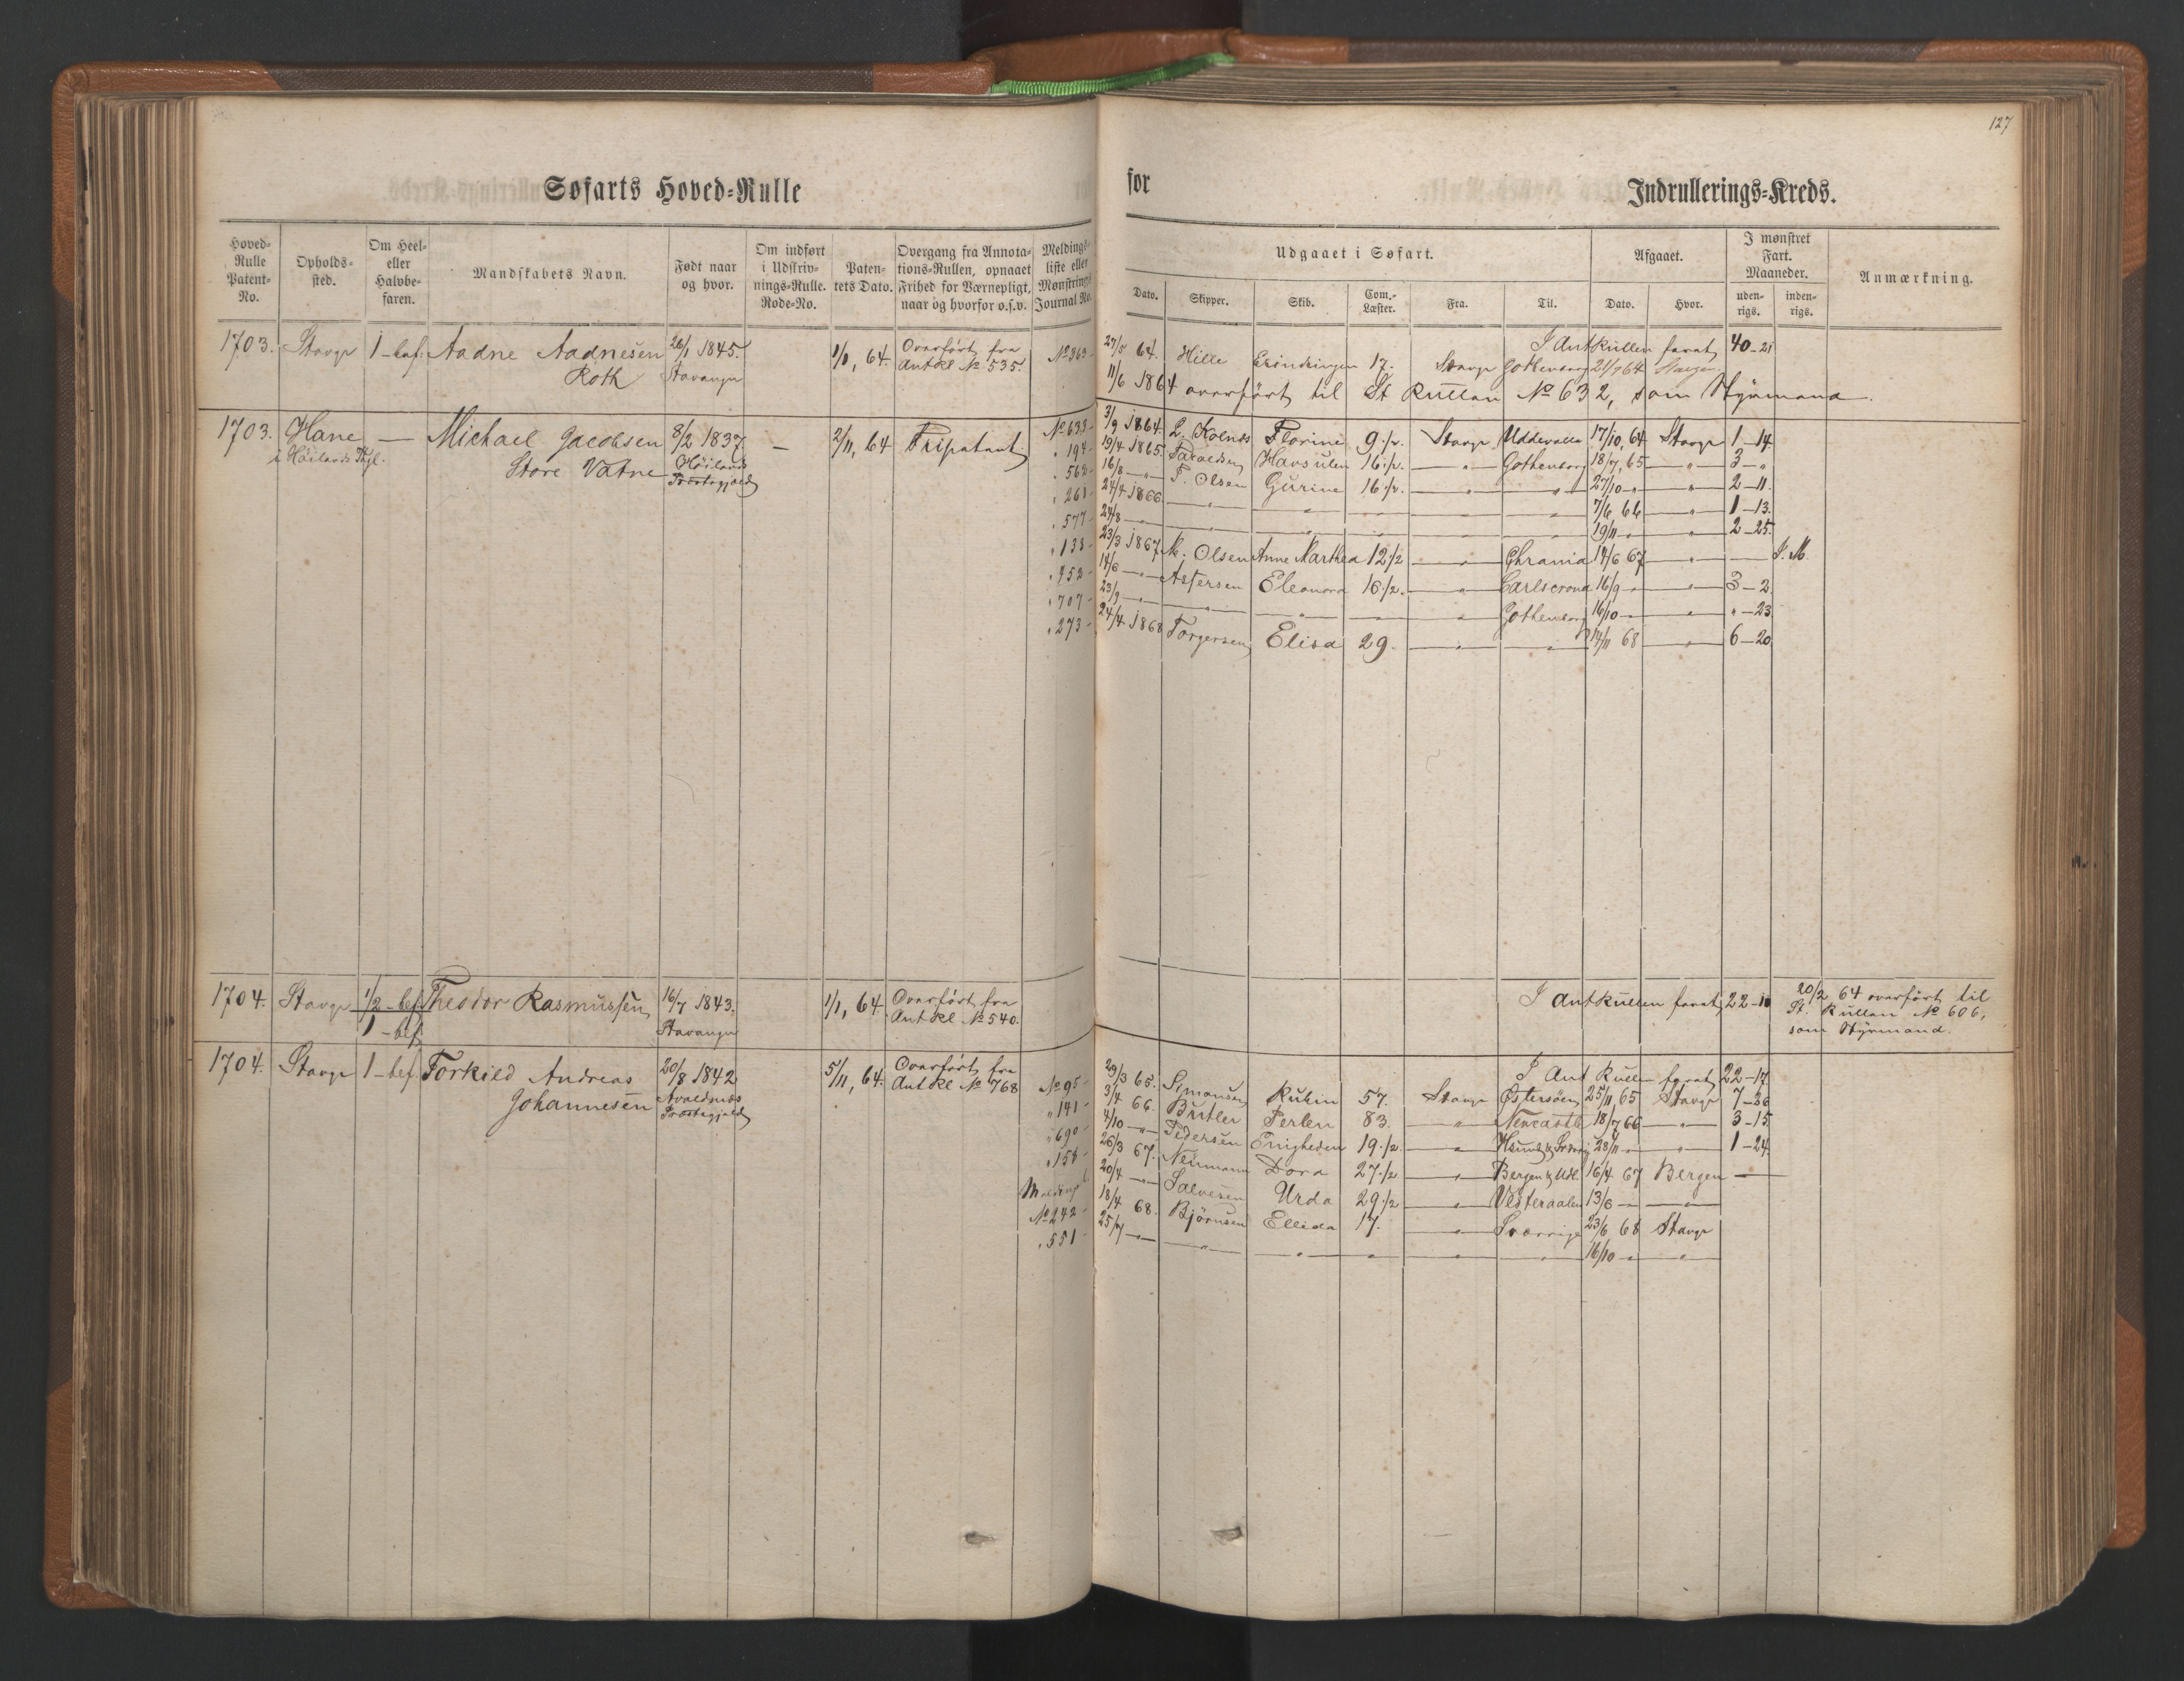 127
Søfarts Hoved-Rulle
for
Indrullerings-Kreds.
Hoved-Rulle Patent-No.
Opholds-sted.
Om Heel- eller Halvbe-faren.
Mandskabets Navn.
Født naar og hvor.
Om indført i Udskriv-nings-Rulle. Rode-No.
Paten-tets Dato.
Overgang fra Annota-tions-Rullen, opnaaet Frihed for Værnepligt, naar og hvorfor o.s.v.
Meldings-liste eller Mønstrings Journal No.
Udgaaet i Søfart.
Dato.
Skipper.
Skib.
Com.-Læster.
Fra.
Til.
Afgaaet.
Dato.
Hvor.
I mønstret Fart. Maaneder.
uden-rigs.
inden-rigs.
Anmærkning.
1703. Stavgr 1-bef. Aadne Aadnesen 26/1 1845. 1/1, 64. Overført fra No 363
Roth Stavanger Ant Rl No 535.
I Antrullen farat 40-21
27/5 64. Hille Erindringen 17. Stavgr Gothenborg 21/7 64 Stavgr
11/6 1864 overført til St Rullen No 632, som Styrmand.
1703. Hane — Michael Jacobsen 8/2 1837 — 2/11, 64 Fripatent No 633
i Höilands Pgl. Store Vatne Höilands Præstegjeld
3/9 1864. L. Kolnes Florine 9 1/2. Stavgr Uddevalla 17/10, 64 Stavgr 1-14.
" 194 19/4 1865. Taraldsen Havsulen 16 1/2. — " — Gothenborg 18/7, 65 — " — 3 - "
" 562 16/8 — " — T. Olsen Gurine 16 1/2. — " — " — 27/10 " — " — 2-11.
" 261 24/4 1866 — " — " — " — " — 7/6 66 — " — 1-13.
" 577 24/8 — " — " — " — " — 19/11 " — " — 2-25.
" 138 23/3 1867. M. Olsen Anne Marthea 12 1/2 — " — Chrania 14/6 67 — " — — I. M.
" 452 14/6 — " — Astersen Eleonora 16 1/2. — " — Carlscrona 16/9 " — " — 3-2.
" 707 23/9 — " — " — " — " — Gothenborg 16/10 " — " — " - 23
" 273 24/4 1868 Torgersen Elisa 29. — " — " — 14/11 68 — " — 6-20
1704. Stavgr 1/2-bef. Theodor Rasmussen 16/7 1843. 1/1, 64. Overført fra
1-bef. Stavanger Ant Rl No 540.
I Antrullen farat 22-10
20/2 64 overført til
St. Rullen No 606,
som Styrmand.
1704. Stavgr 1-bef. Torkild Andreas 20/8 1842 5/11, 64. Overført fra
Johannesen Avaldsnes Præstegjeld Ant Rl No 768
I Ant Rullen farat 22-17.
No 95 29/3 65. Simonsen Rubin 57. Stavgr Østersøen 25/11, 65 Stavgr 7-26
" 141 3/4 66. Butler Perlen 83. — " — Newcastle 18/7 66 — " — 3-15.
" 690 4/10 — " — Pedersen Enigheden 19 1/2 — " — 28/11 " — " — 1-24
" 158 26/3 67. Neumann Dora 27 1/2 — " — Bergen & Udl 16/4 67 Bergen —
20/4 — " — Salvesen Urda 29 1/2 — " — Vesteraalen 13/6 — " —
No 242 18/4 68. Bjørnsen Ellida 17. — " — Sverrige 23/6 68 Stavgr
" 551 25/7 — " — " — " — " — " — " — 16/10 " — " —